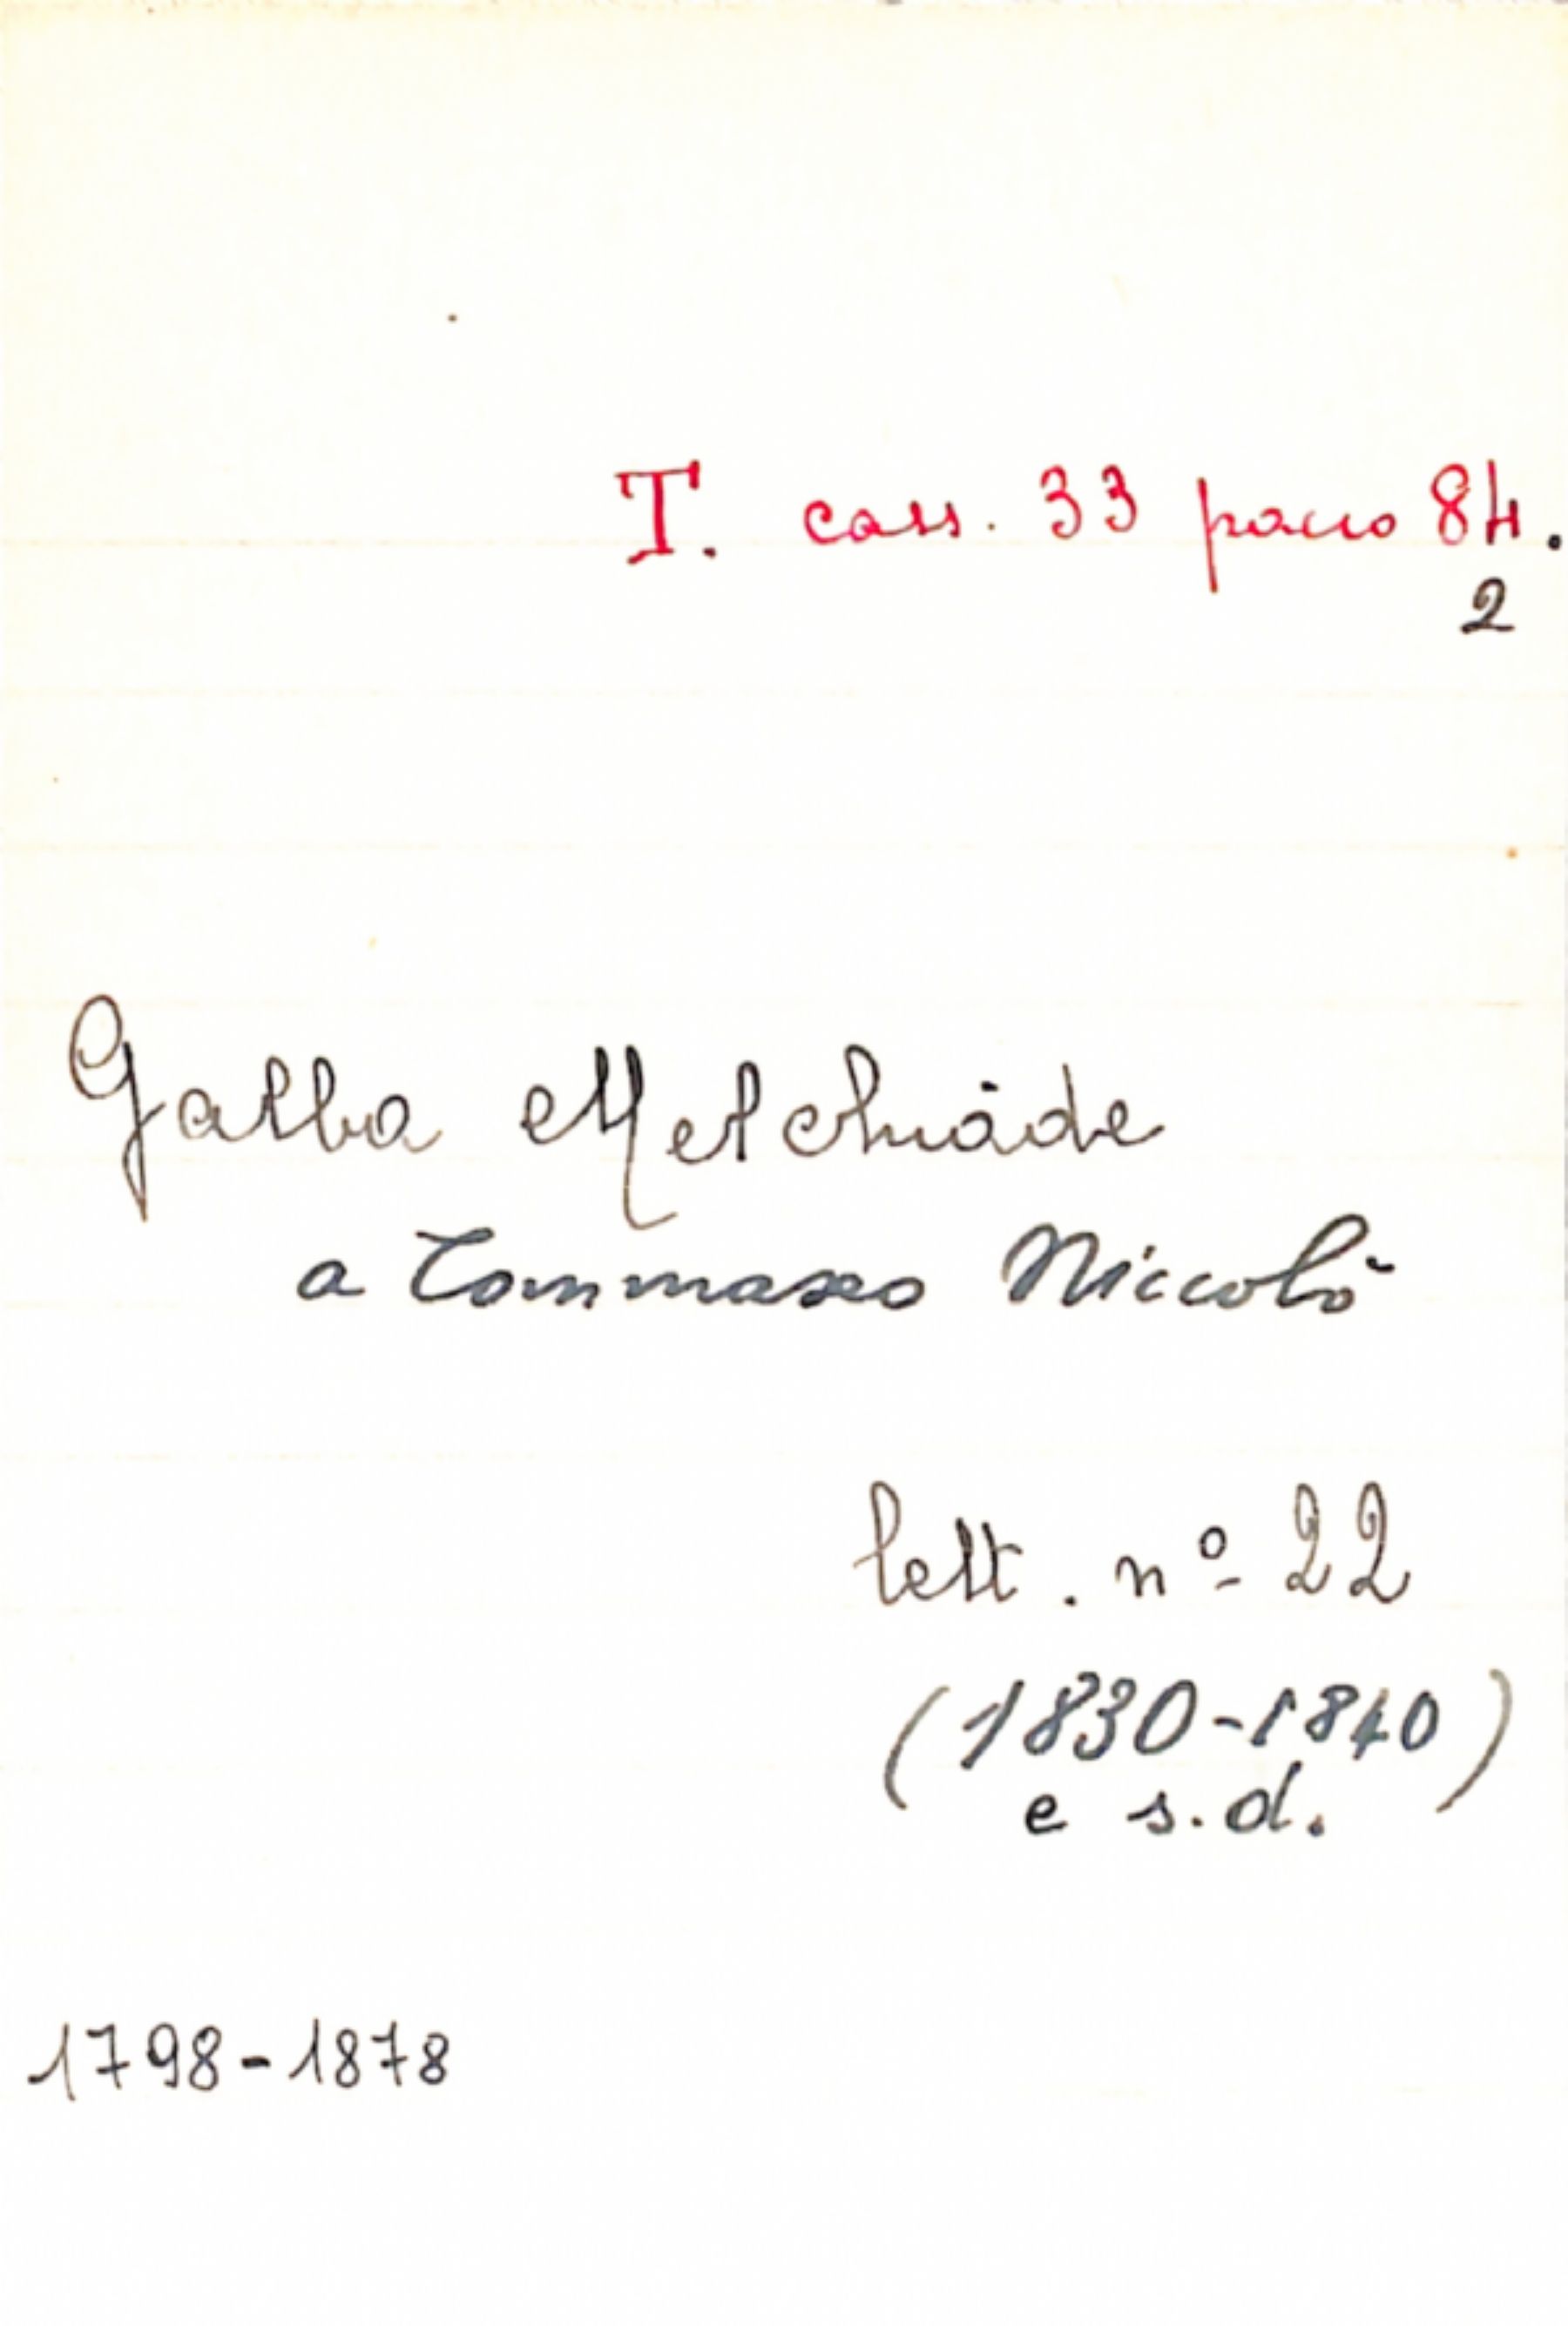 T. cass. 33 pacco 84.
2
Galba Melchiàde
a Tommaseo Niccolò
lett. nº 22
(1830-1840)
e s.d.
1798-1878